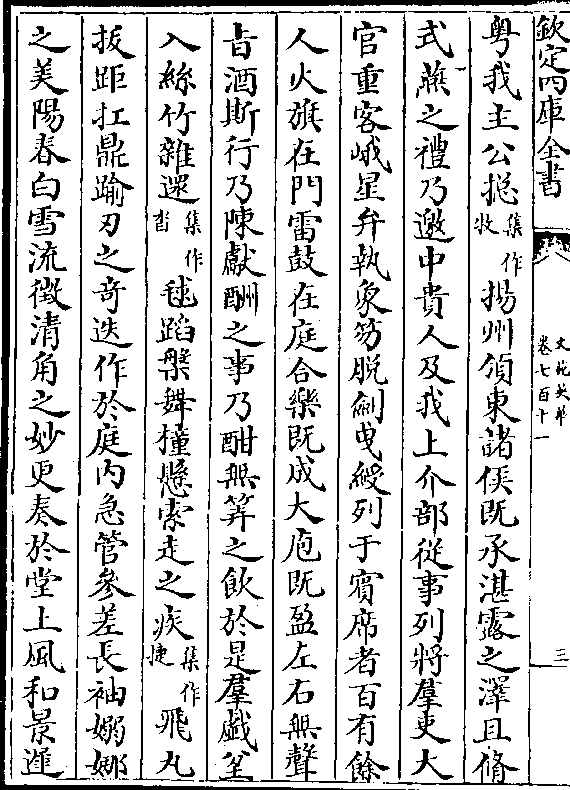 欽定四庫全書
文苑英華
卷七百十一
三
粤我主公揔集作牧揚州領東諸侯既承湛露之澤且脩
式燕之禮乃邀中貴人及我上介部從事列將羣吏大
官重客峨星弁執象笏脫劍曳綬列于賓席者百有餘
人火旗在門雷鼓在庭合樂既成大庖既盈左右無聲
旨酒斯行乃陳獻酬之事乃酣無筭之飲於是羣戲坌
入絲竹雜遝集作沓毬蹈槃舞橦懸索走之疾集作捷飛丸
拔距扛鼎踰刃之奇迭作於庭内急管參差長袖嫋娜
之美陽春白雪流徵清角之妙更奏於堂上風和景遲